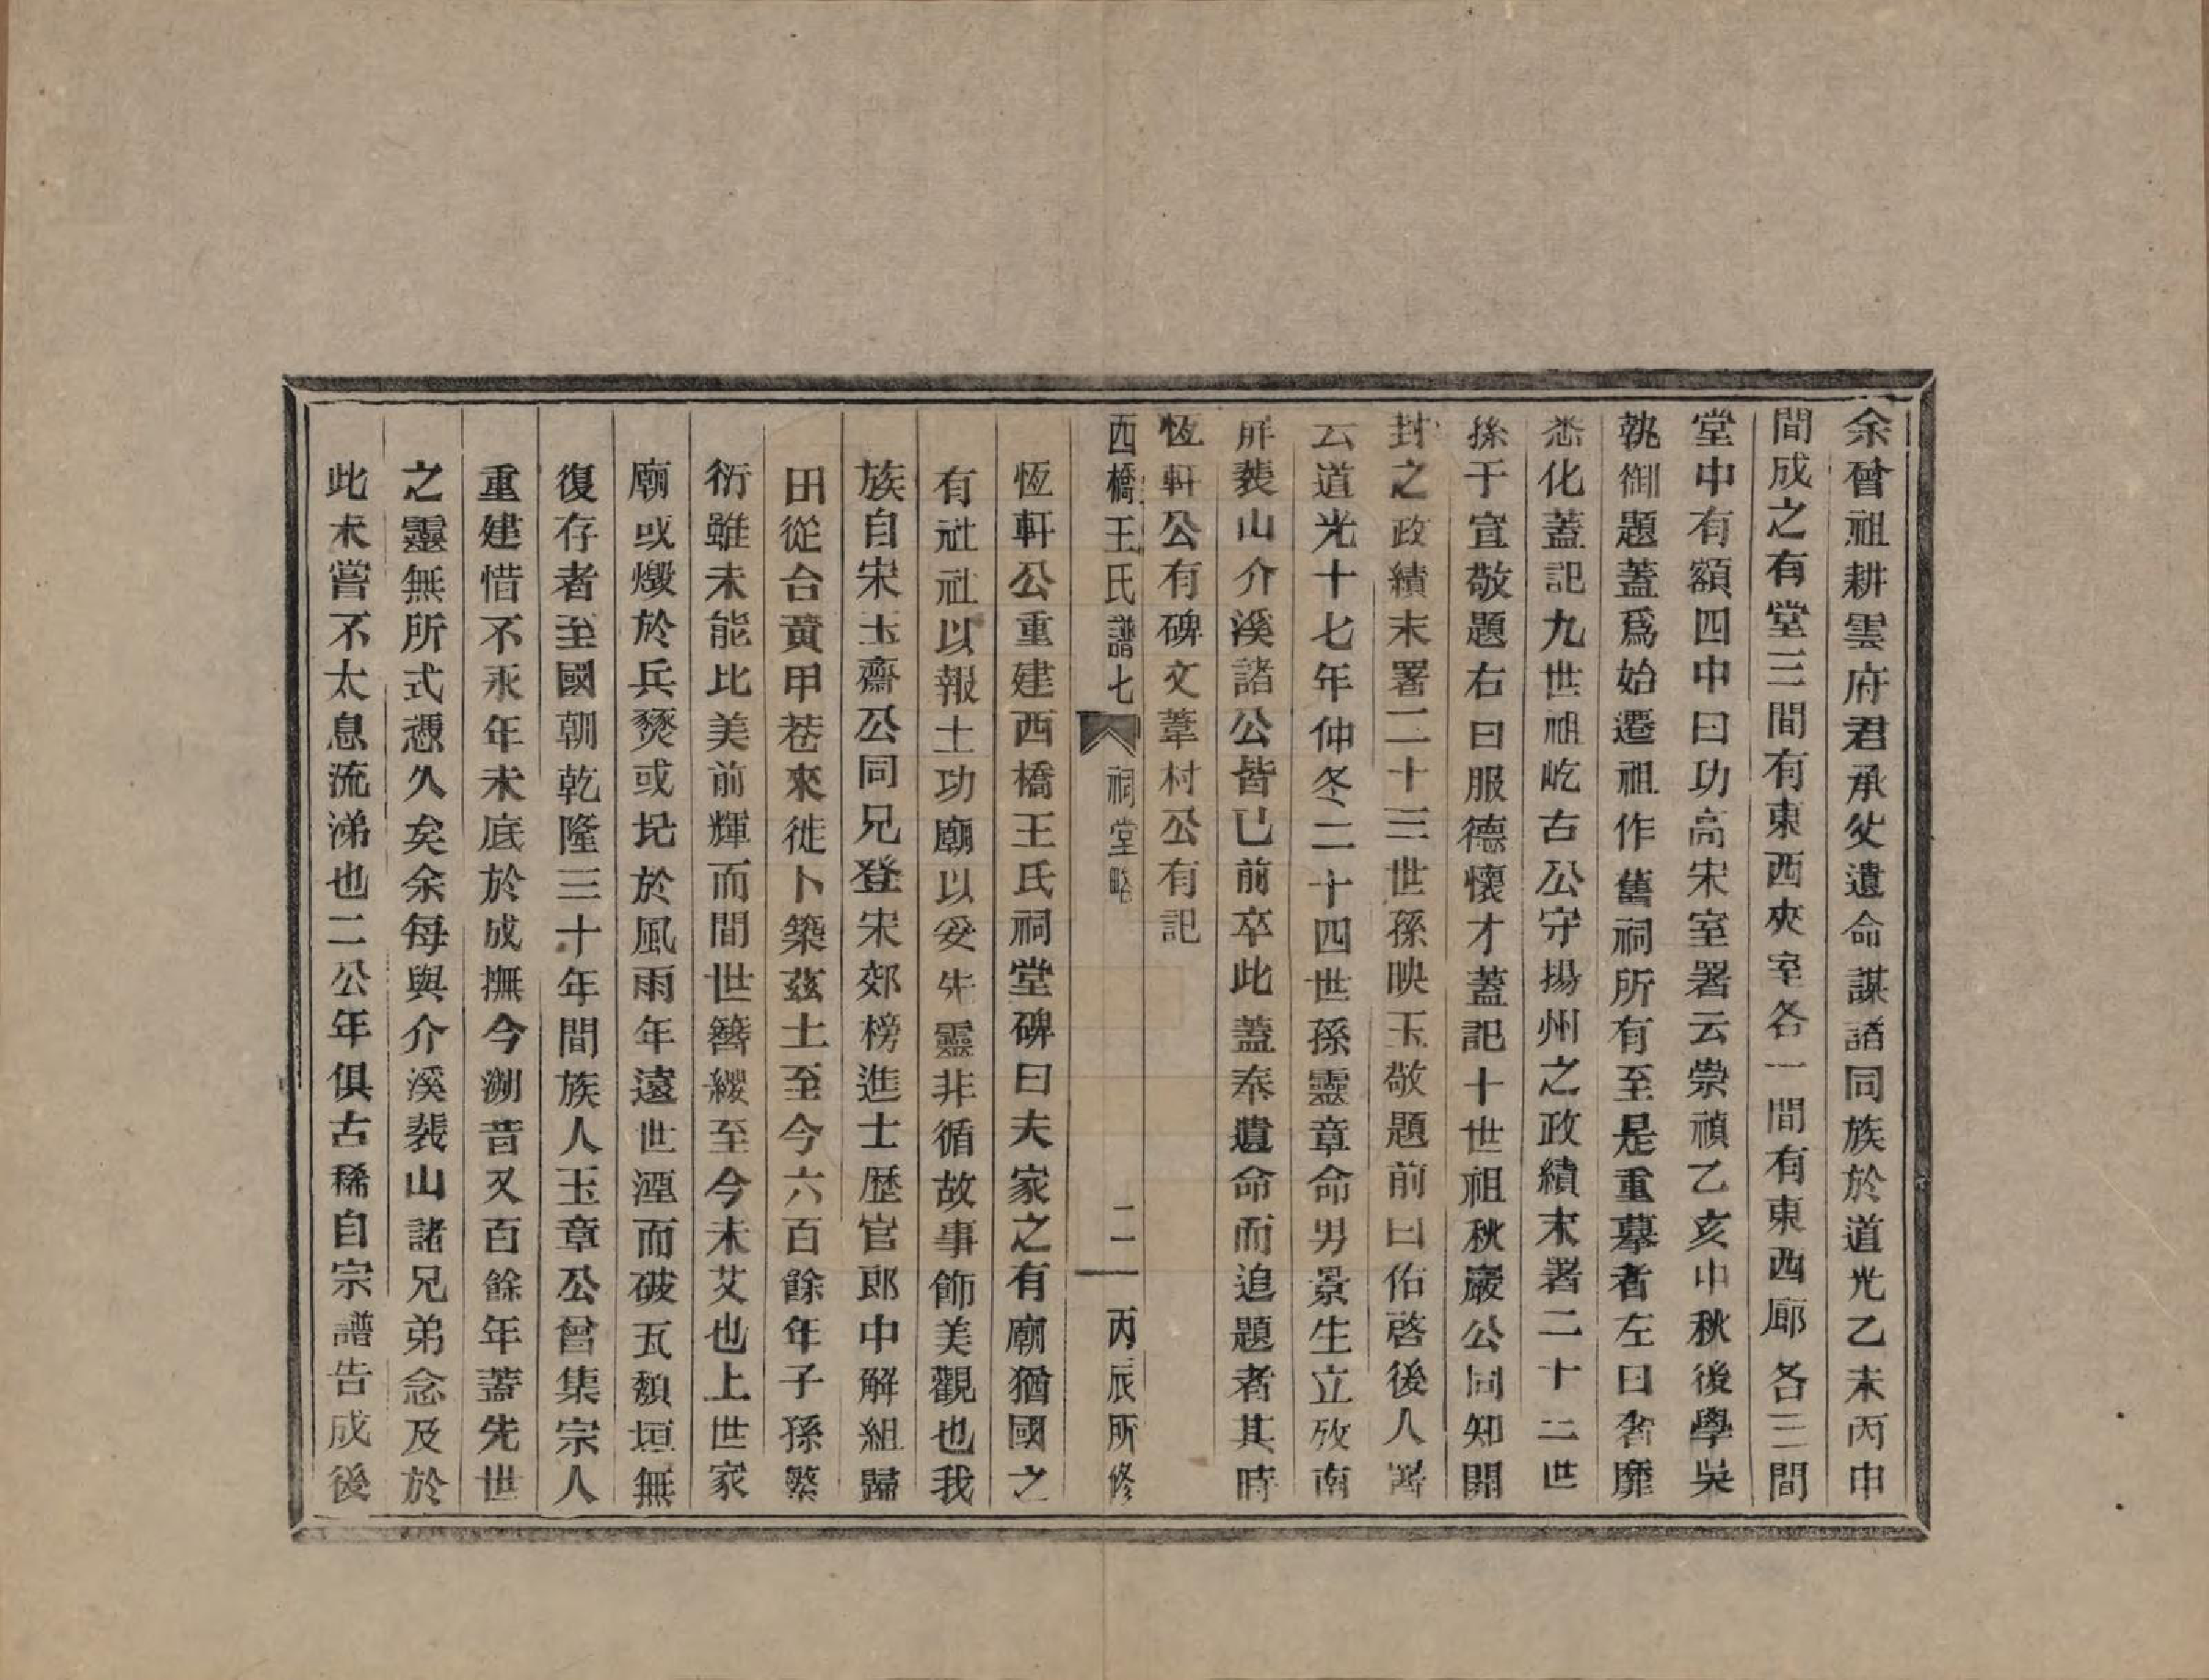 余曾祖耕雲府君承父遺命謀諸同族於道光乙未丙申
間成之有堂三間有東西夾室各一間有東西廊各三間
堂中有額四中曰功高宋室署云崇禎乙亥中秋後學吳
執御題蓋爲始遷祖作舊祠所有至是重摹者左曰奢靡
悉化蓋記九世祖屹古公守揚州之政績末署二十二世
孫于宣敬題右曰服德懷才蓋記十世祖秋巖公同知開
封之政績末署二十三世孫映玉敬題前曰佑啓後人署
云道光十七年仲冬二十四世孫靈章命男景生立攷南
屛裴山介溪諸公皆已前卒此蓋奉遺命而追題者其時
恆軒公有碑文葦村公有記
西橋王氏譜七 祠堂略 二 丙辰所修
恆軒公重建西橋王氏祠堂碑曰夫家之有廟猶國之
有社社以報土功廟以妥先靈非循故事飾美觀也我
族自宋玉齋公同兄登宋郊榜進士歷官郎中解組歸
田從台黃甲巷來徙卜築茲土至今六百餘年子孫繁
衍雖未能比美前輝而間世簪纓至今未艾也上世家
廟或燬於兵燹或圮於風雨年遠世湮而破瓦頹垣無
復存者至國朝乾隆三十年間族人玉章公曾集宗人
重建惜不永年未底於成撫今溯昔又百餘年蓋先世
之靈無所式憑久矣余每與介溪裴山諸兄弟念及於
此未嘗不太息流涕也二公年俱古稀自宗譜告成後